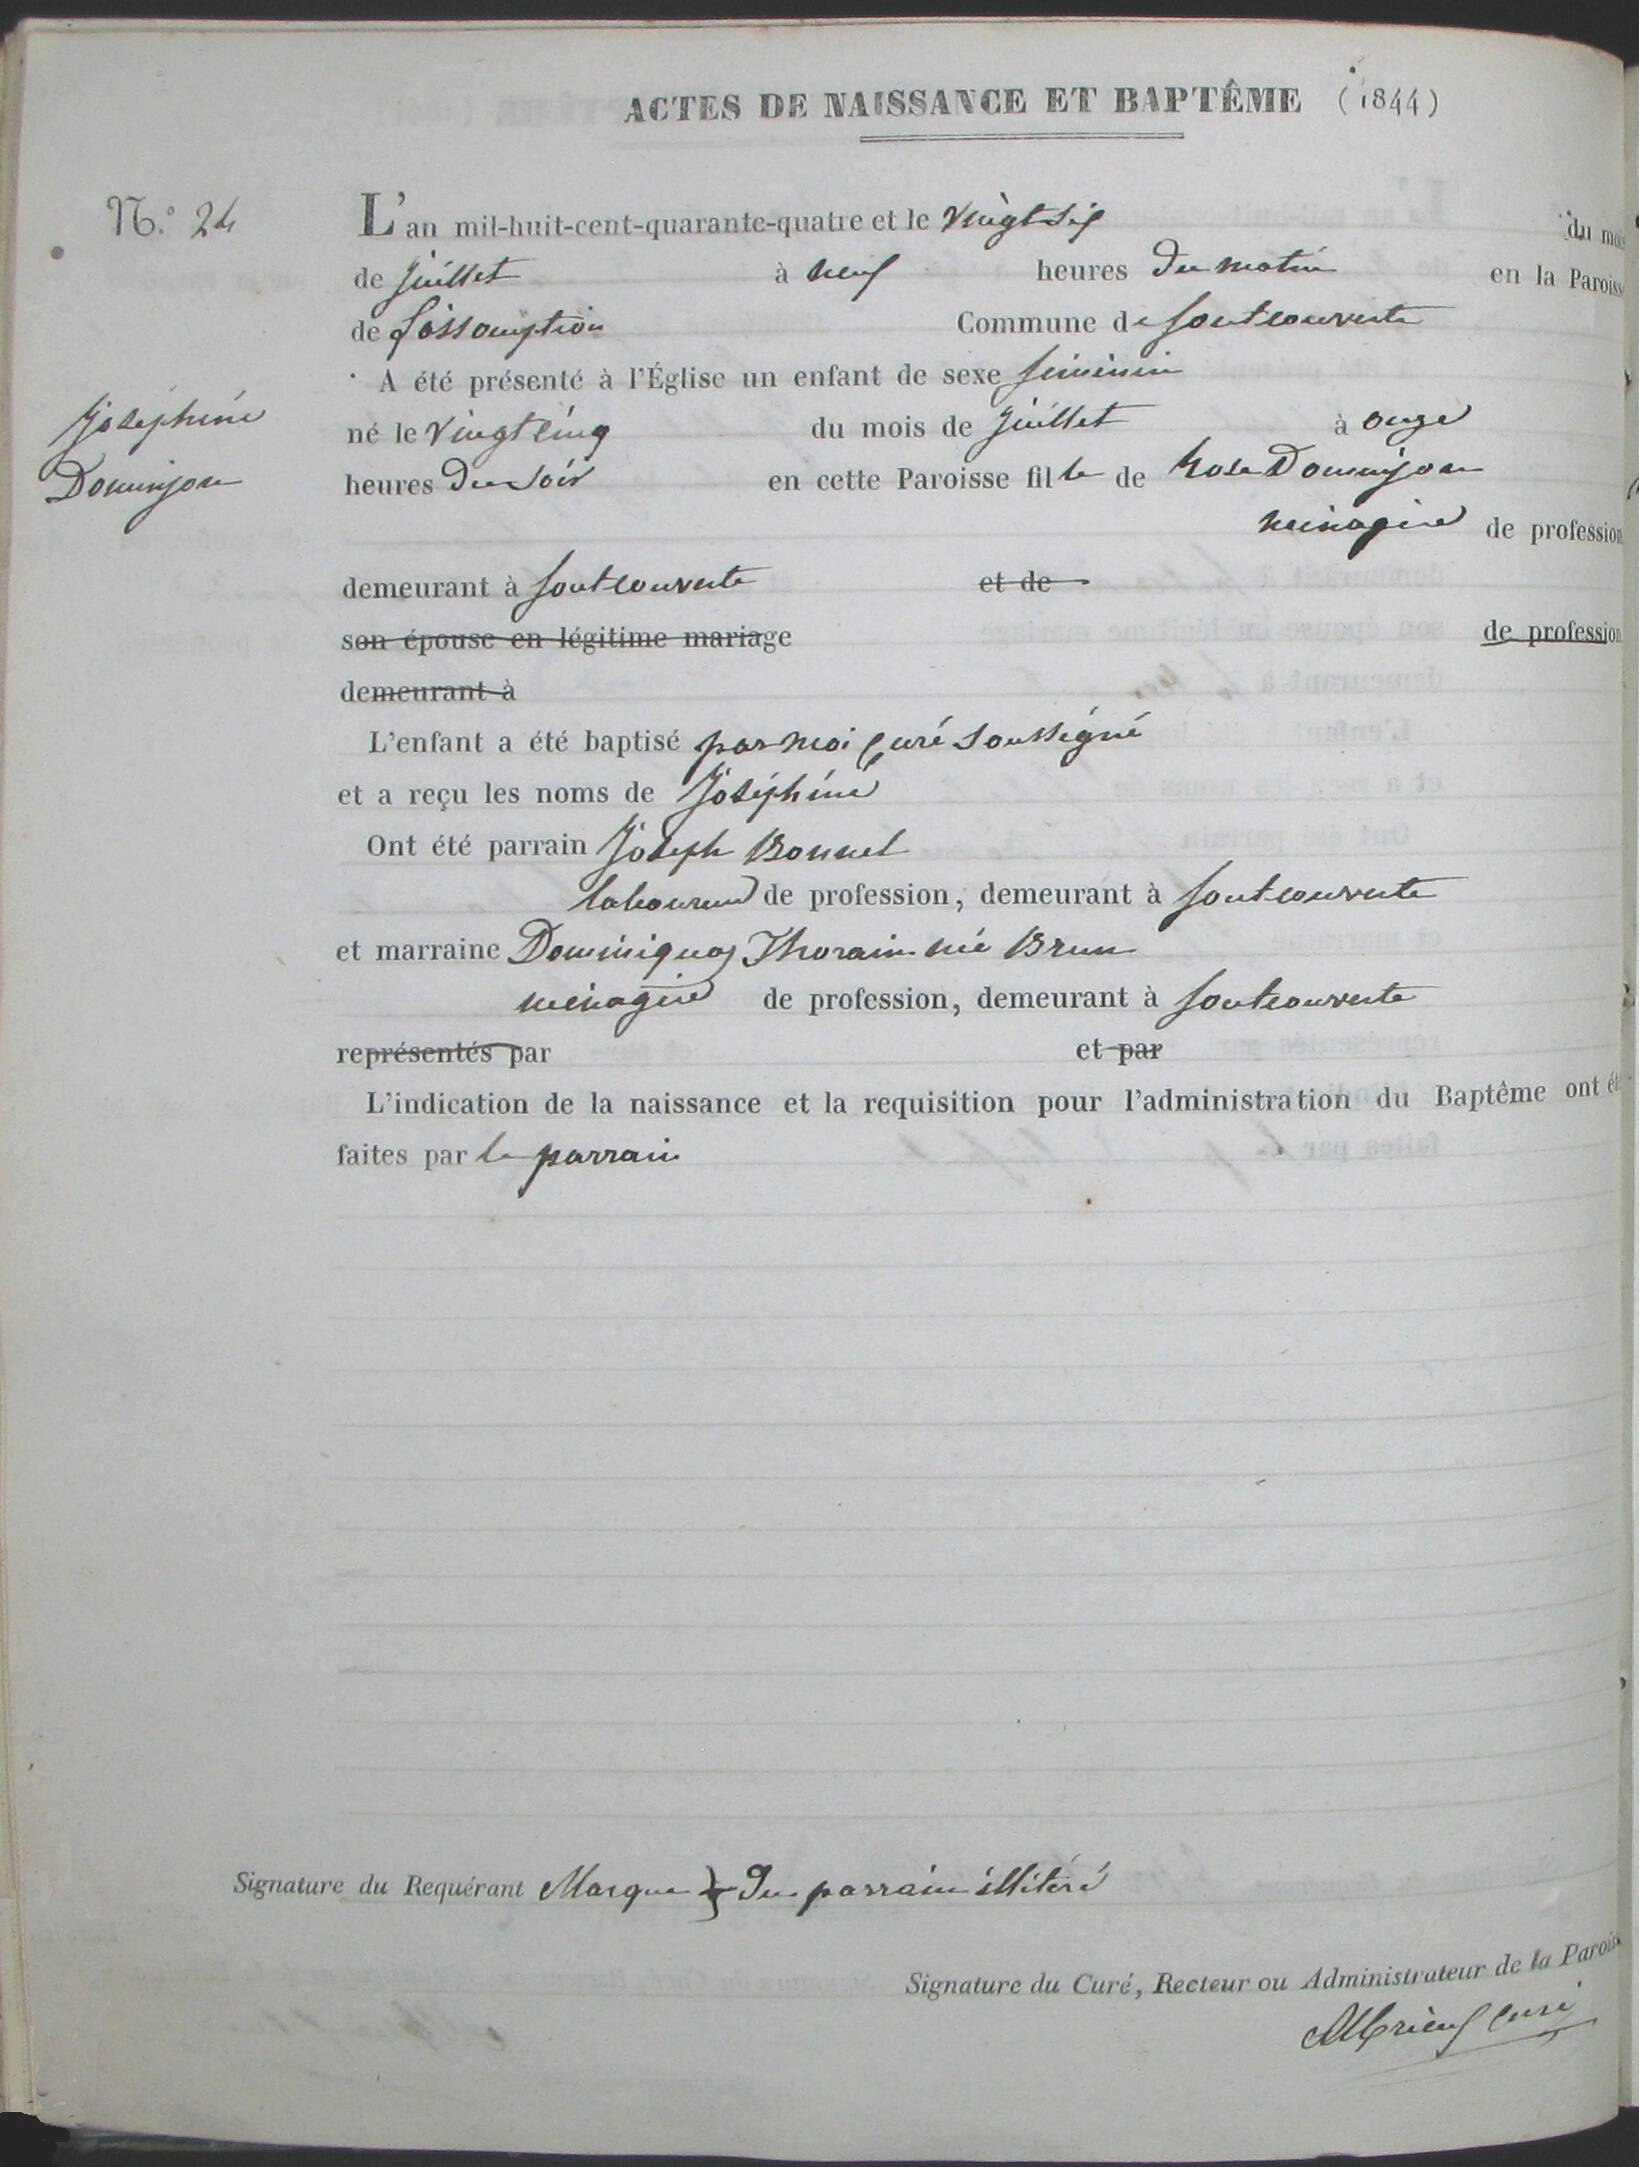 ACTES DE NAISSANCE ET BAPTÊME (1844)
N.º 24
L'an mil-huit-cent-quarante-quatre et le vingt six du mois
de juillet à neuf heures du matin en la Paroisse
de l'assomption Commune de fontcouverte
A été présenté à l'Église un enfant de sexe feminin
Joséphine
Dominjon
né le vingt cinq du mois de juillet à onze
heures du soir en cette Paroisse fille de Rose Dominjon
ménagère de profession
demeurant à fontcouverte et de
son épouse en légitime mariage de profession
demeurant à
L'enfant a été baptisé par moi curé soussigné
et a reçu les noms de Joséphine
Ont été parrain Joseph Bonnel
laboureur de profession, demeurant à fontcouverte
et marraine Dominique Thorain née Brun
ménagère de profession, demeurant à fontcouverte
représentés par et par
L'indication de la naissance et la requisition pour l'administration du Baptême ont ét
faites par le parrain
Signature du Requérant Marque du parrain illitéré
Signature du Curé, Recteur ou Administrateur de la Parois
curé